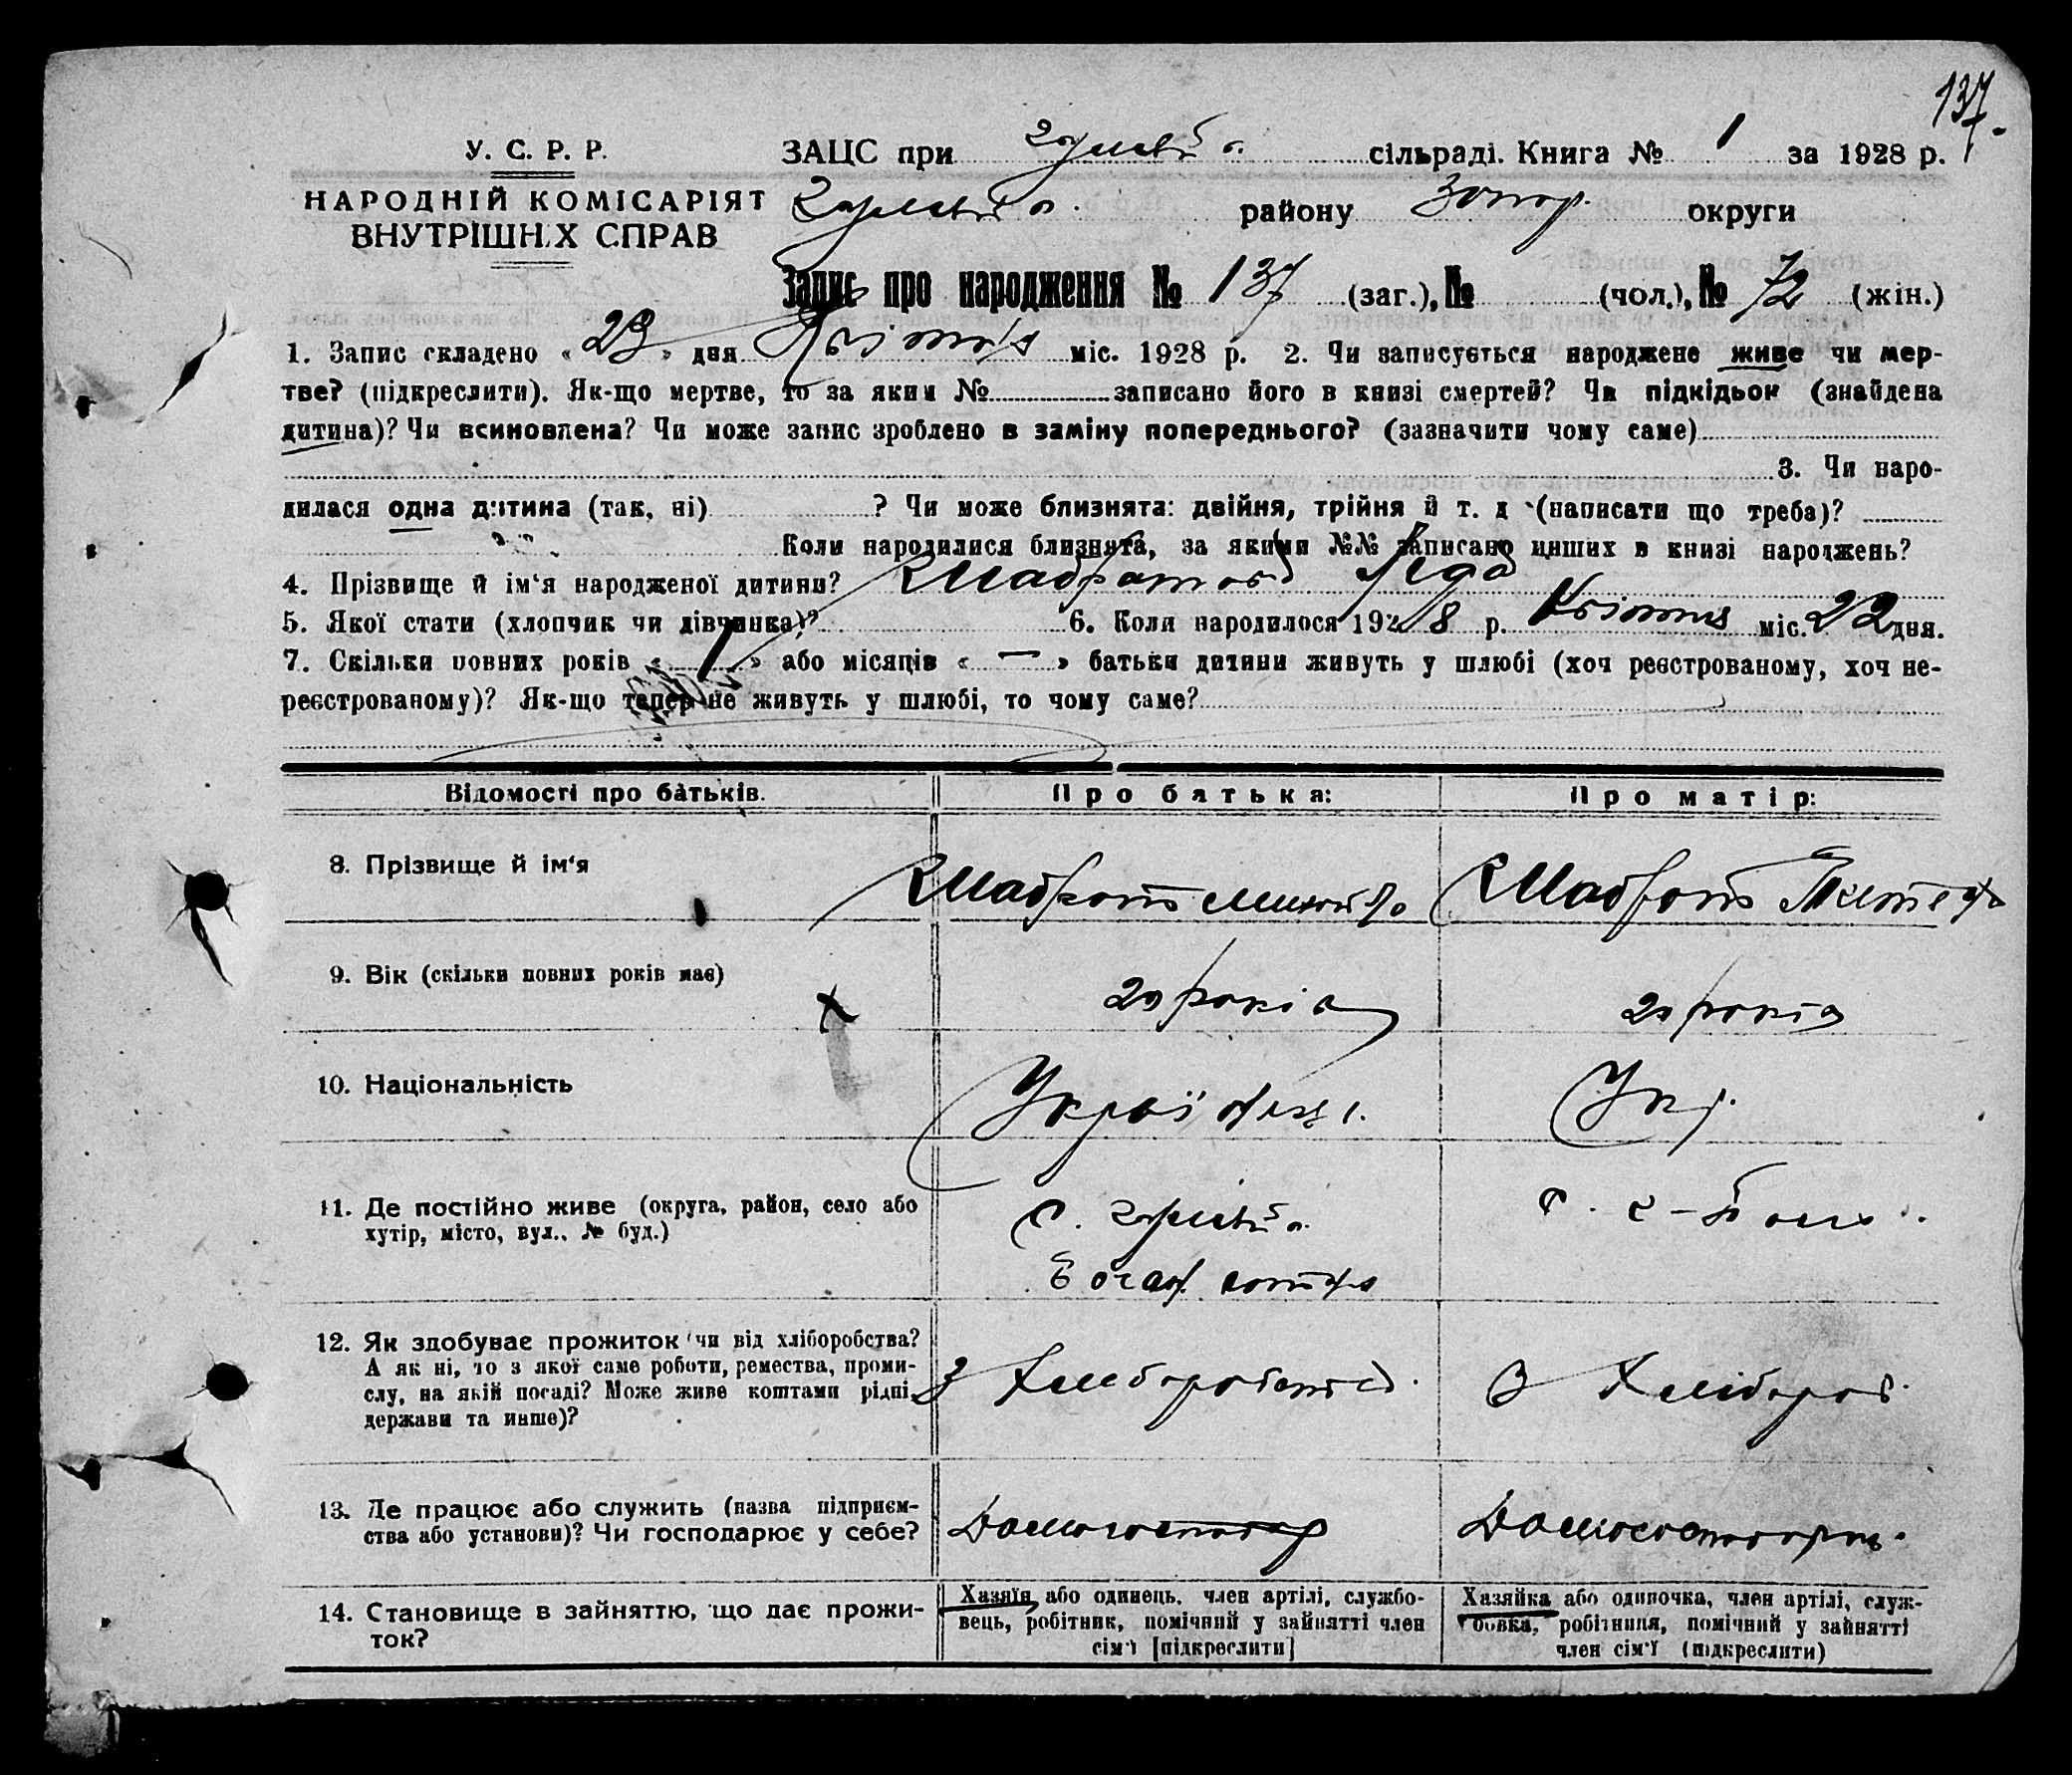 137.
У. С. Р. Р.
НАРОДНІЙ КОМІСАРІЯТ
ВНУТРІШНІХ СПРАВ
ЗАЦС при сільраді. Книга № 1 за 1928 р.
району Запор. округи
Запис про народження № 137 (заг.), № (чол.), № 72 (жін.)
1. Запис складено « 23 » дня Квітня міс. 1928 р. 2. Чи записується народжене живе чи мер-
тве? (підкреслити). Як-що мертве, то за яким № записано його в книзі смертей? Чи підкідьок (знайдена
дитина)? Чи всиновлена? Чи може запис зроблено в заміну попереднього? (зазначити чому саме)
3. Чи наро-
дилася одна дитина (так, ні) ? Чи може близнята: двійня, трійня й т. д (написати що треба)?
Коли народилися близнята, за якими №№ записано инших в книзі народжень?
4. Прізвище й ім‘я народженої дитини?
5. Якої стати (хлопчик чи дівчинка)? 6. Коли народилося 1928 р. Квітня міс. 22 дня.
7. Скільки повних років « 1 » або місяців « — » батьки дитини живуть у шлюбі (хоч реєстрованому, хоч не-
реєстрованому)? Як-що тепер не живуть у шлюбі, то чому саме?
Відомості про батьків. Про батька: Про матір:
8. Прізвище й ім‘я
9. Вік (скільки повних років має) 20 років 20 років
10. Національність Українец. Укр.
11. Де постійно живе (округа, район, село або
хутір, місто, вул.. № буд.)
12. Як здобуває прожиток чи від хліборобства?
А як ні, то з якої саме роботи, ремества, проми-
слу, на якій посаді? Може живе коштами рідні,
держави та инше)?
З Хліборобства. З Хлібороб.
13. Де працює або служить (назва підприєм-
ства або установи)? Чи господарює у себе?
Домогосподар Домогосподарка.
14. Становище в зайняттю, що дає прожи-
ток?
Хазяїн або одинець, член артілі, службо-
вець, робітник, помічний у зайнятті член
сім'ї [підкреслити]
Хазяйка або одиночка, член артілі, служ-
бовка, робітниця, помічний у зайнятті
член сім'ї (підкреслити)